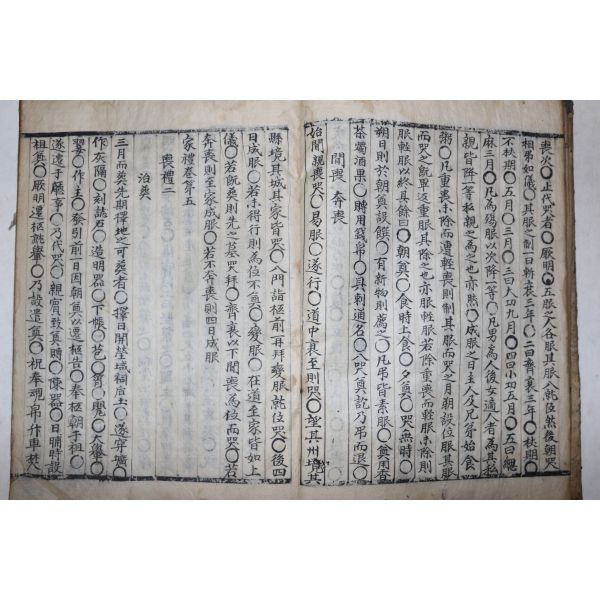 喪次○止代哭者○厥明○五服之人各服其服入就位然後朝哭
相弔如儀○其服之制一曰斬衰三年○二曰齊衰三年○杖期○
不杖期○五月○三月○三曰大功九月○四曰小功五月○五曰緦
麻三月○凡爲殤服以次降一等○凡男爲人後女適人者爲其私
親皆降一等私親之爲之也亦然○成服之日主人及兄弟始食
粥○凡重喪未除而遭輕喪則制其服而哭之月朔設位服其服
而哭之旣畢返重服其除之也亦服輕服若除重喪而輕服未除則
服輕服以終其餘日○朝奠○食時上食○夕奠○哭無時○
朔日則於朝奠設饌○有新物則薦之○凡弔皆素服○奠用香
茶燭酒果○賻用錢帛○具刺通名○入哭奠訖乃弔而退○
聞喪 奔喪
始聞親喪哭○易服○遂行○道中哀至則哭○望其州境其
縣境其城其家皆哭○入門詣柩前再拜變服就位哭○後四
日成服○若未得行則爲位不奠○變服○在道至家皆如上
儀○若旣葬則先之墓哭拜○齊衰以下聞喪爲位而哭○若
奔喪則至家成服○若不奔喪則四日成服
家禮卷第五
喪禮二
治葬
三月而葬先期擇地之可葬者○擇日開塋域祠后土○遂穿壙○
作灰隔○刻誌石○造明器○下帳○苞○筲○甖○大轝○
翣○作主○發引前一日因朝奠以遷柩告○奉柩朝于祖○
遂遷于廳事○乃代哭○親賓致奠賻○陳器○日晡時設
祖奠○厥明遷柩就轝○乃設遣奠○祝奉魂帛升車焚